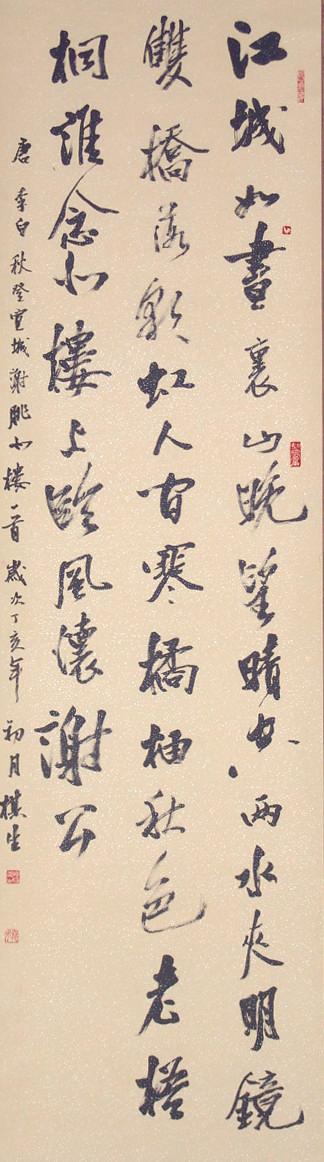 江城如畫裏山晚望晴空兩水夾明鏡
雙橋落彩虹人間寒橘柚秋色老梧
桐誰念北樓上臨風懷謝公
唐李白秋登宣城謝朓北樓一首 歲次丁亥年初月棋生